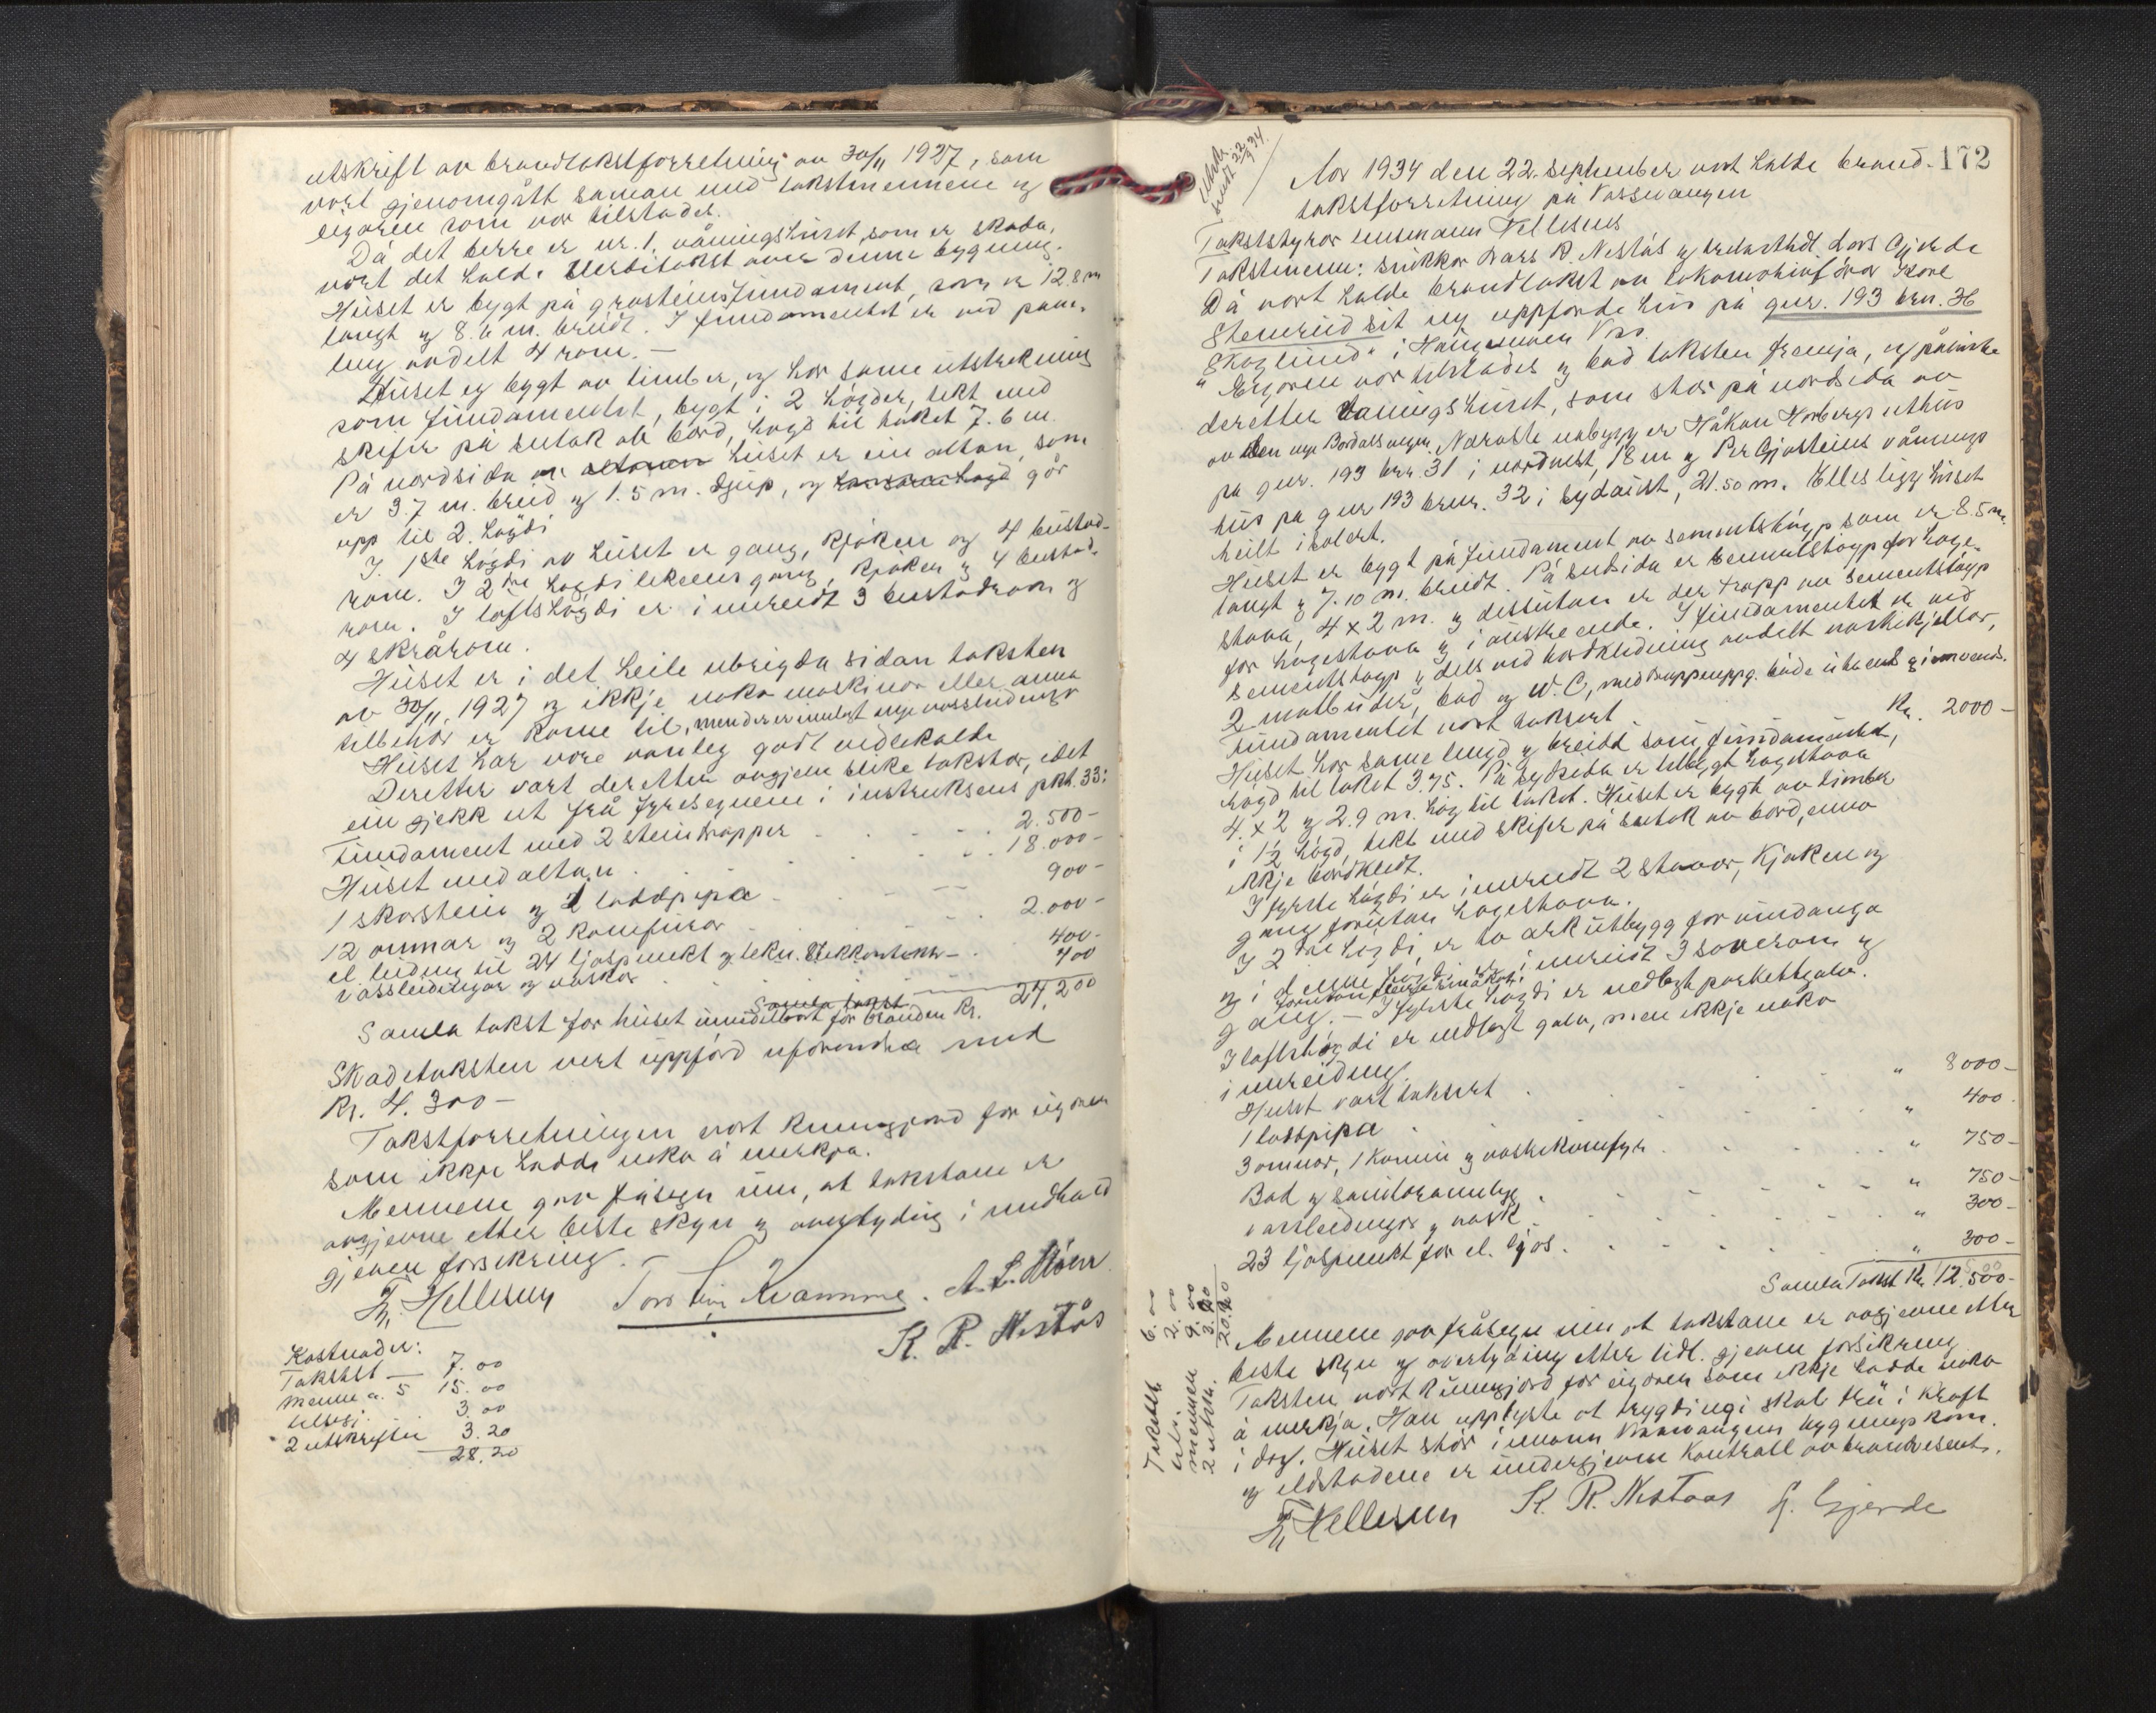 utskrift av brandtakstforretning av 30/11 1927, som
vart gjenomgått saman med takstmennene og
eigaren som var tilstades.
Då det berre er nr. 1, våningshuset, som er skada,
vart det halde verditakst over denne bygning.
Huset er bygt på grasteinsfundament, som er 12.8 m
langt og 8.6 m. breidt. I fundamentet er ved pane-
ling avdelt 4 rom. —
Huset er bygt av timber, og har same utstrekning
som fundamentet, bygt i 2 högder, tekt med
skifer på sutak av bord, högd til taket 7.6 m.
På nordsida av altanen huset er ein altan, som
er 3.7 m. breid og 1.5 m. djup, og har same högd går
upp til 2. högdi
I 1ste högdi av huset er gang, kjøken og 4 bustad-
rom. I 2dre högdi likeens gang, kjøken og 4 bustad-
rom. I loftshögdi er innreidt 3 bustadrom og
4 skrårom.
Huset er i det heile ubrigda sidan taksten
av 30/11. 1927 og ikkje noko maskinar eller anna
tilbehør er kome til, men der er innlagt nye vassleidingar
Huset har vore vanleg godt vedlikalde
Deretter vart deretter avgjeve slike takstar, idet
ein gjekk ut frå fyresegnene i instruksens pkt. 33:
Fundament med 2 steintrapper - - - - 2.500-
Huset med altan . . . . 18.000-
1 skorstein og 1 luftpipa - - - 900-
12 omnar og 2 komfurar . . 2.000-
el. leiding til 24 ljospunkt og tekn. stikkontakt - . 400-
Vassleidingar og vaskar . . . 400
Samla takst
Samla takst for huset umiddelbart før branden Kr. 24,200
Skadetaksten vert uppförd uforandra med
Kr. 4.300-
Takstforretningen vart kunngjord for eigaren
som ikkje hadde noko å merkja.
Mennene gav fråsegn um, at takstane er
avgjevne etter beste skyn og overtyding i medhald
gjeven forsikring. —
Fr. Hellesen Torstein Kvamme. A. L. Mörr
K. R. Nestås
Kostnader:
Takstst — 7.00
Menne a. 5 15.00
tilsegj. 3.00
2 utskrifter 3.20
28.20
172
Utskr.
sendt 22/9 34.
Aar 1934 den 22. september vart halde brand-
takstforretning på Vossevangen
Takststyrar lensmann Hellesnes
Takstmenn: snikkar Lars R. Nestås og Lars Gjerde
Då vart halde brandtakst av lokomotivförar Kore
Stenerud sit ny uppförde hus på gnr. 193 bnr. 36
"Skoglund" i Hangursmoen Voss.
Eigaren var tilstades og bad taksten fremja, og påviste
deretter våningshuset, som står på nordsida av
av den nye Bordalsvegen. Næraste nabygg er Håkon Horbergs uthus
på gnr. 193 bnr. 31 i nordvest, 18 m og Per Gjosteins vånings
hus på gnr 193 bnr. 32 i sydaust, 21.50 m. Elles ligg huset
heilt isolert.
Huset er bygt på fundament av sementstøyp som er 8.5 m.
langt og 7.10 m. breidt. På sudsida er sementstøyp for hage-
stova, 4 x 2 m. og dessutan er der trapp av sementstøyp
for hagestova og i austre ende. I fundamentet er ved
sementstøyp og dels ved bordkledning avdelt vaskekjellar,
2 matbuder, bad og W.C, med trappeuppg. både utvendes og innvendes.
Fundamentet vart taksert Kr. 2000-
Huset har same lengd og breidd som fundamentet,
högd til taket 3.75. På sydsida er tilbygt hagestova
4 x 2 og 2.9 m. høg til taket. Huset er bygt av timber
i 1½ högd, tekt med skifer på sutak av bord, enno
ikkje bordkledt.
I fyrste högdi er innreidt 2 stover, kjøken og
gang forutan hagestova.
I 2dre högdi, er to ark utbygg for vindauga
og i denne högdi er innreidt 3 soverom og
forutan flere småkott
gang. — I fyrste högdi er nedlagt parkettgolv.
I loftshögdi er nedlagt golv, men ikkje noko
innreiding.
Huset vart taksert . . . . " 8000-
1 luftpipa . . . . " 400-
3 omnar, 1 kamin og vaskekomfyr . . . " 750-
Bad og sanitæranlegg . . . . " 750-
Vassleidingar og vask . . . . " 300-
23 ljospunkt for el. ljos . . . . " 300-
Samla Takst Kr. 12.500-
Mennene gav fråsegn um at takstane er avgjevne etter
beste skyn og overtyding etter tidl. gjeven forsikring
Taksten vart kunngjord for eigaren som ikkje hadde noko
å merkja. Han upplyste at trygdingi skal tru i kraft
i dag. Huset står innann Vossevangens bygningskom.
og eldstadene er undergjevne kontroll av brandvesenet.
Fr. Hellesen K. R. Nestaas L. Gjerde
Takstst 6.00
utr. 2.00
mennen 9.00
2 utskr. 3.20
20.20